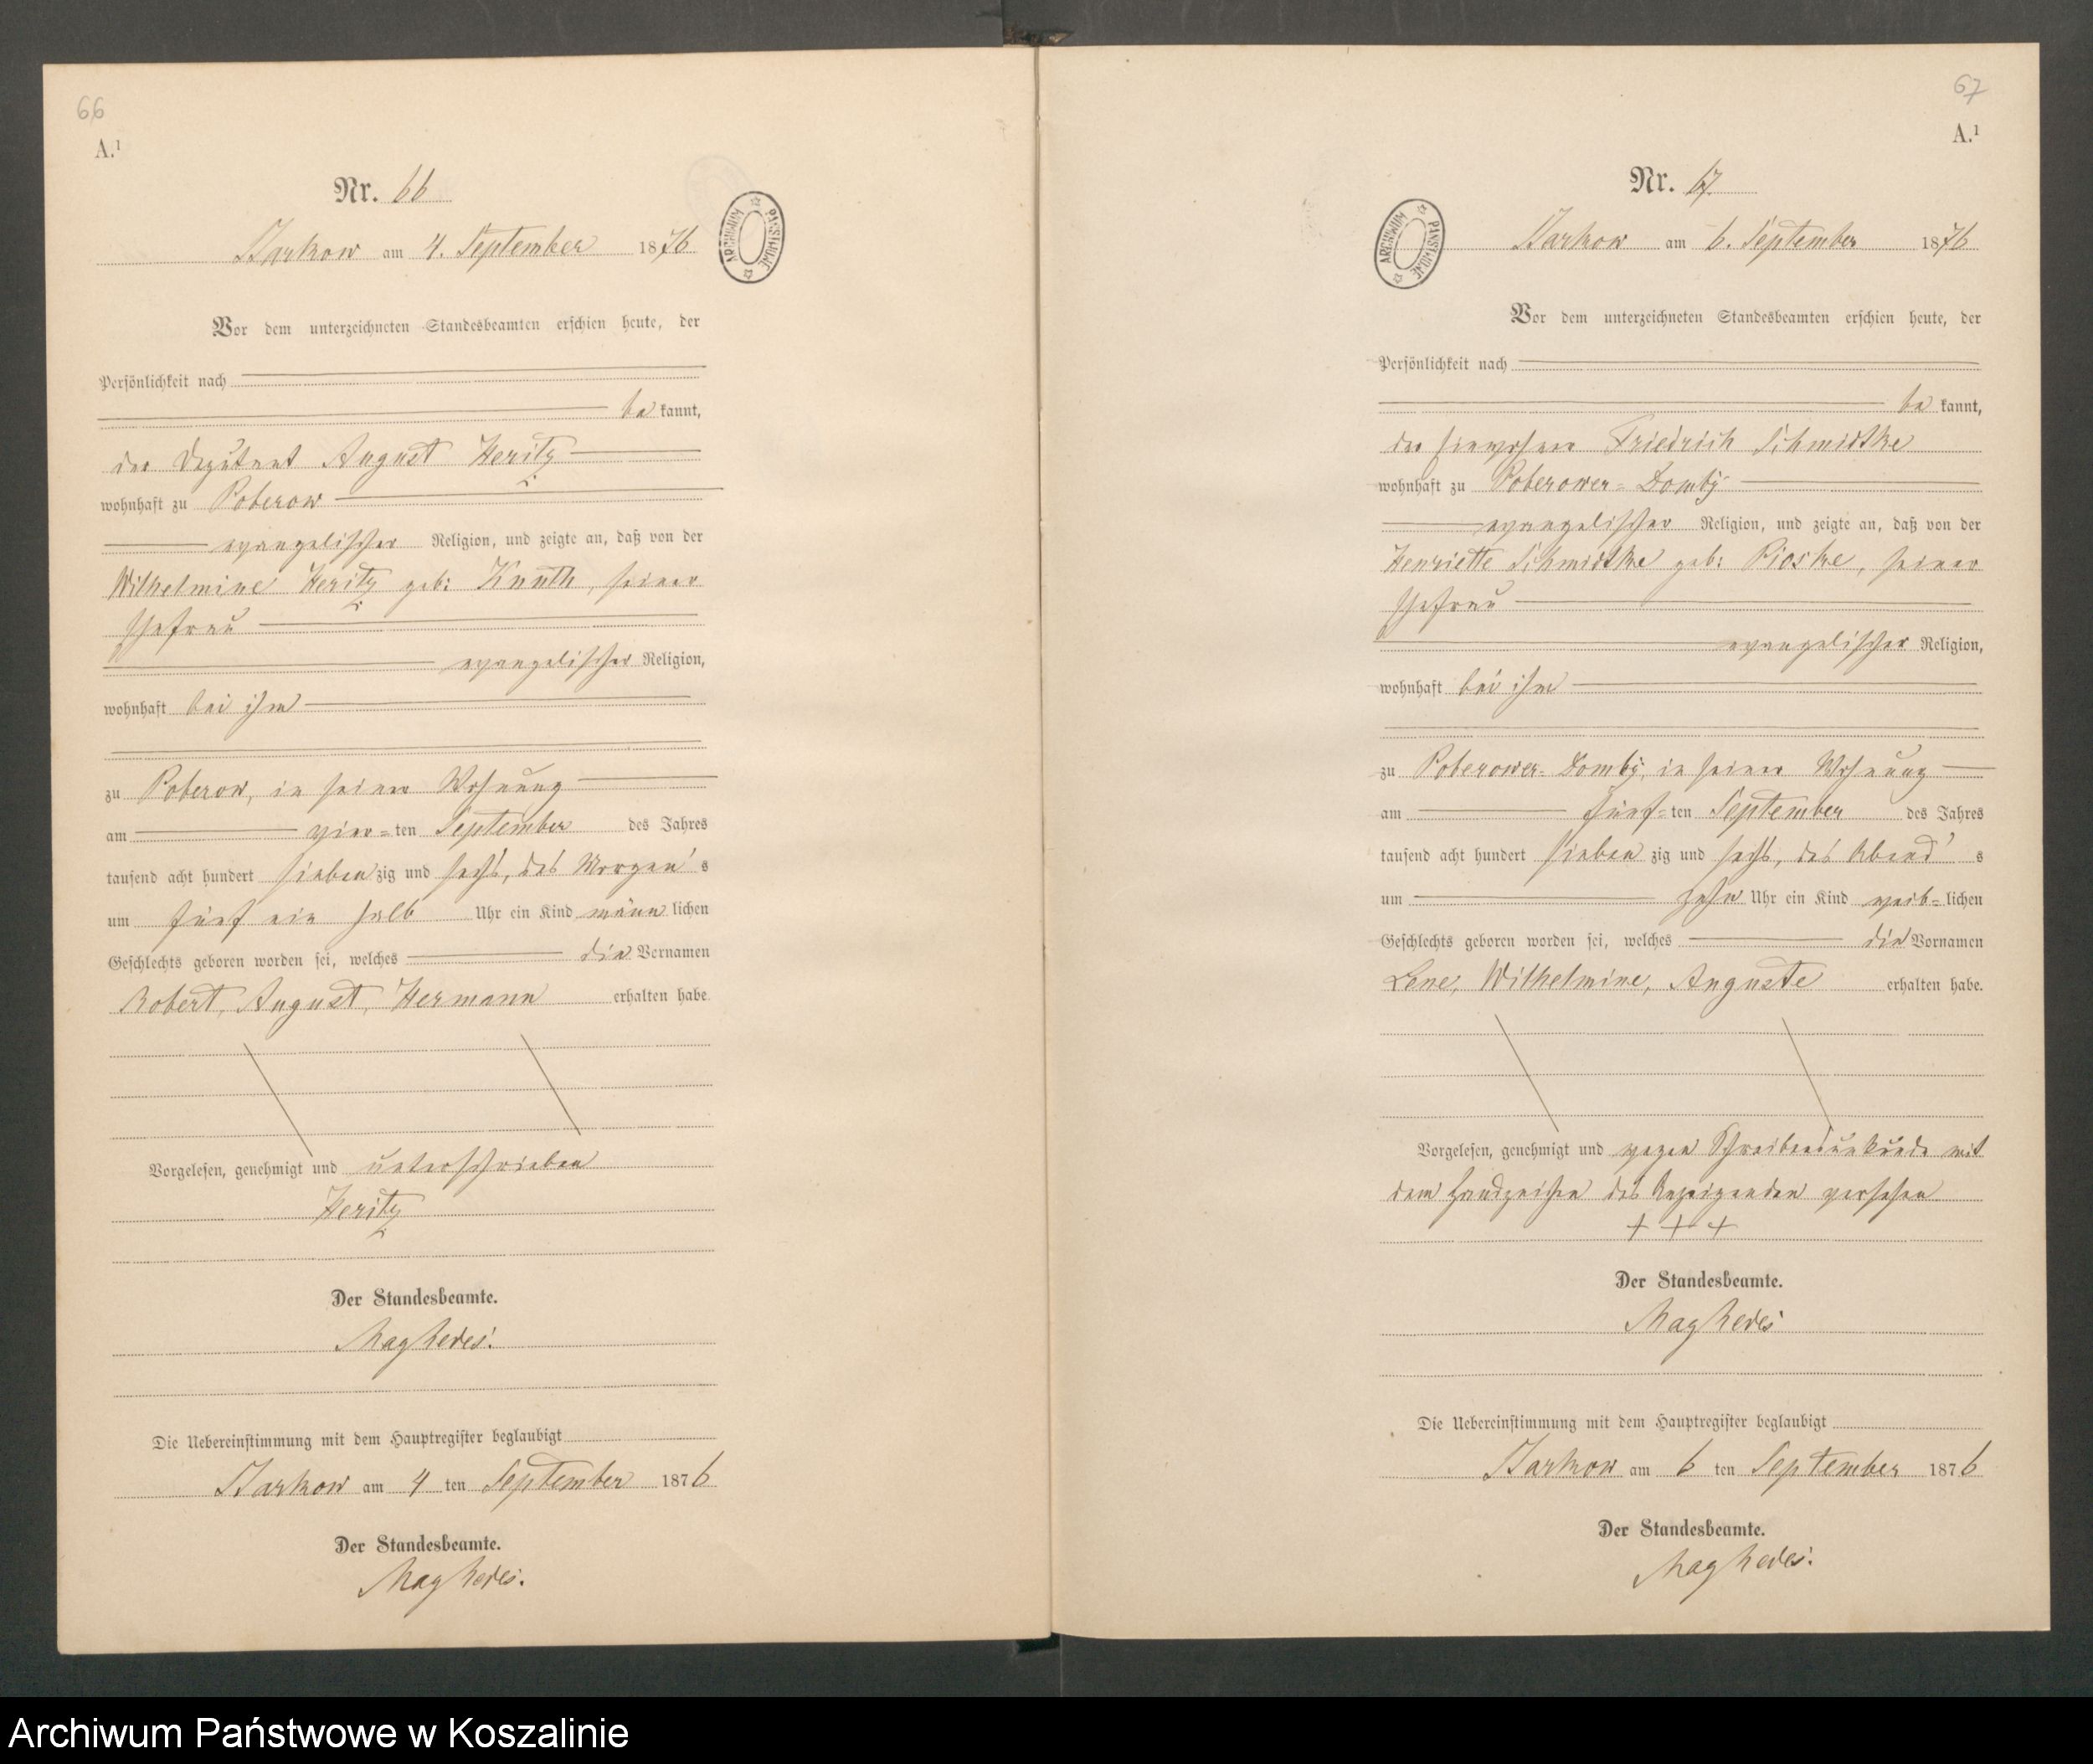 66
A.¹
Nr. 66
ARCHIWUM PAŃSTWOWE
Starkow am 4. September 1876
Vor dem unterzeichneten Standesbeamten erschien heute, der
Persönlichkeit nach
be kannt,
der Deputant August Heritz
wohnhaft zu Poberow
evangelischer Religion, und zeigte an, daß von der
Wilhelmine Heritz geb: Knuth, seiner
Ehefrau
evangelischer Religion,
wohnhaft bei ihm
zu Poberow, in seiner Wohnung
am vier=ten September des Jahres
tausend acht hundert sieben zig und sechs, des Morgen's
um fünf ein halb Uhr ein Kind männ lichen
Geschlechts geboren worden sei, welches die Vornamen
Robert, August, Hermann erhalten habe.
Vorgelesen, genehmigt und unterschrieben
Heritz
Der Standesbeamte.
Die Uebereinstimmung mit dem Hauptregister beglaubigt
Starkow am 4 ten September 1876
Der Standesbeamte.
67
A.¹
Nr. 67.
ARCHIWUM PAŃSTWOWE
Starkow am 6. September 1876
Vor dem unterzeichneten Standesbeamten erschien heute, der
Persönlichkeit nach
be kannt,
der Einwohner Friedrich Schmidtke
wohnhaft zu Poberower=
evangelischer Religion, und zeigte an, daß von der
Henriette Schmidtke geb: Pioske, seiner
Ehefrau
evangelischer Religion,
wohnhaft bei ihm
zu Poberower= in seiner Wohnung
am fünf=ten September des Jahres
tausend acht hundert sieben zig und sechs, des Abend's
um zehn Uhr ein Kind weib=lichen
Geschlechts geboren worden sei, welches die Vornamen
Lene, Wilhelmine, Auguste erhalten habe.
Vorgelesen, genehmigt und wegen Schreibensunkunde mit
dem Handzeichen des Anzeigenden versehen
+ + +
Der Standesbeamte.
Die Uebereinstimmung mit dem Hauptregister beglaubigt
Starkow am 6 ten September 1876
Der Standesbeamte.
Archiwum Państwowe w Koszalinie